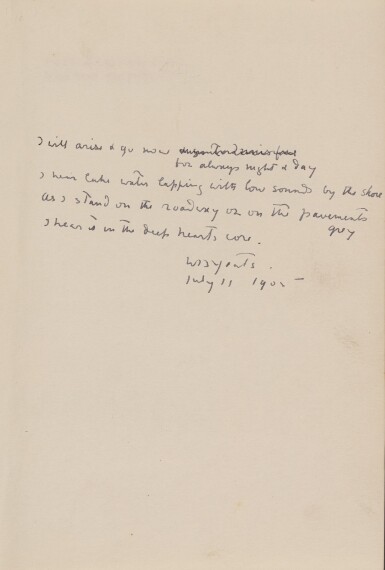 I will arise & go now
for always night & day
I hear lake water lapping with low sounds by the shore
as I stand on the roadway or on the pavements
grey
I hear it in the deep hearts core.
WB Yeats.
July 11 1905